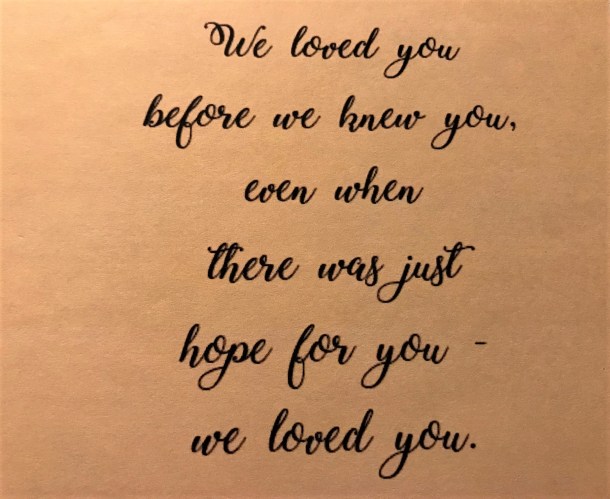 We loved you
before we knew you,
even when
there was just
hope for you -
we loved you.